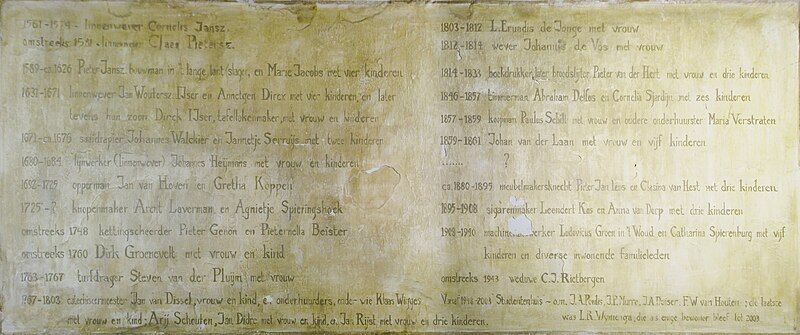 1561-1574 - linnenwever Cornelis Jansz.
omstreeks 1581 - linnenwever Claes Pietersz.
1589-ca.1626 Pieter Jansz. bouwman in 't lange lant/slager, en Marie Jacobs met vier kinderen
1631-1671 linnenwever Jan Woutersz. IJser en Annetgen Dircx met vier kinderen, en later
tevens hun zoon Dirck IJser, tafellakenmaker, met vrouw en kinderen
1671-ca.1675 saaidrapier Johannes Walckier en Jannetje Serruijs met twee kinderen
1680-1684 lijnwerker (linnenwever) Johannes Heijmans met vrouw en kinderen
1692-1725 opperman Jan van Hoven en Gretha Koppen
1725-? knopenmaker Arent Laverman en Agnietje Spieringshoek
omstreeks 1748 kettingscheerder Pieter Genon en Pieternella Beister
omstreeks 1760 Dirk Groenevelt met vrouw en kind
1763-1767 turfdrager Steven van der Pluijm met vrouw
1767-1803 Jan van Dissel, vrouw en kind, en onderhuurders, onder wie Klaas
met vrouw en kind; Arij Scheuten, Jan Didre met vrouw en kind, en Jan Rijst met vrouw en drie kinderen.
1803-1812 L. Erundis de Jonge met vrouw
1812-1814 wever Johannes de Vos met vrouw
1814-1833 boekdrukker, later broodslijter Pieter van der Hert met vrouw en drie kinderen
1846-1857 timmerman Abraham Delfos en Cornelia Sjardijn met zes kinderen
1857-1859 koopman Paulus Schill met vrouw en oudere onderhuurster Maria Verstraten
1859-1861 Johan van der Laan met vrouw en vijf kinderen
....... ?
ca. 1880-1895 meubelmakersknecht Pieter Jan Leus en Clasina van Hest met drie kinderen
1895-1908 sigarenmaker Leendert Kas en Anna van Dorp met drie kinderen
1908-1910 Ludovicus Groen in 't Woud en Catharina Spierenburg met vijf
kinderen en diverse inwonende familieleden
omstreeks 1943 weduwe C.J. Rietbergen
Vanaf 2003 Studentenhuis - o.m. J.A. J.P. J.A. F.W. van Houten; de laatste
was L.R. Wynienga, die als enige bewoner bleef tot 2003